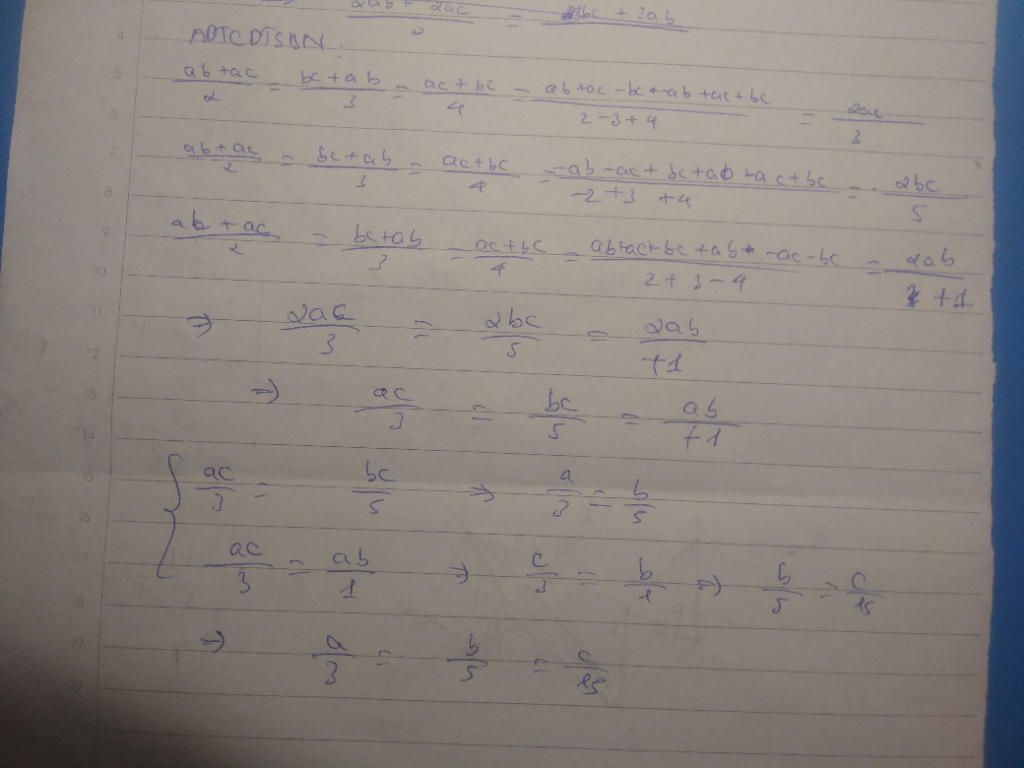 2ab + 2ac = 2bc + 2ab
ADTCDTSBN
ab+ac/2 = bc+ab/3 = ac+bc/4 = ab+ac-bc-ab+ac+bc/2-3+4 = 2ac/3
ab+ac/2 = bc+ab/3 = ac+bc/4 = -ab-ac+bc+ab+ac+bc/-2+3+4 = 2bc/5
ab+ac/2 = bc+ab/3 = ac+bc/4 = ab+ac+bc+ab-ac-bc/2+3-4 = 2ab/+1
=> 2ac/3 = 2bc/5 = 2ab/+1
=> ac/3 = bc/5 = ab/+1
{ ac/3 = bc/5 => a/3 = b/5
ac/3 = ab/1 => c/3 = b/1 => b/5 = c/15
=> a/3 = b/5 = c/15